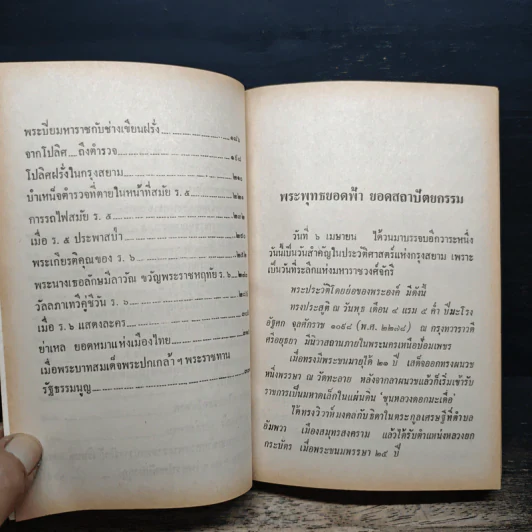 พระปิยมหาราชกับช่างเขียนฝรั่ง
จากโปลิศ...ถึงตำรวจ
โปลิศฝรั่งในกรุงสยาม
บำเหน็จตำรวจที่ตายในหน้าที่สมัย ร. ๕
การรถไฟสมัย ร. ๕
เมื่อ ร. ๕ ประพาสป่า
พระเกียรติคุณของ ร. ๖
พระนางเธอลักษมีลาวัณ ขวัญพระราชหฤทัย ร. ๖
วัลลภาเทวีคู่ชีวัน ร. ๖
เมื่อ ร. ๖ แสดงละคร
ย่าเหล ยอดหมาแห่งเมืองไทย
เมื่อพระบาทสมเด็จพระปกเกล้า ฯ พระราชทาน
รัฐธรรมนูญ
พระพุทธยอดฟ้า ยอดสถาปัตยกรรม
วันที่ ๖ เมษายน ได้วนมาบรรจบอีกวาระหนึ่ง
วันนี้เป็นวันสำคัญในประวัติศาสตร์แห่งกรุงสยาม เพราะ
เป็นวันที่ระลึกแห่งมหาราชวงศ์จักรี
พระประวัติโดยย่อของพระองค์ มีดังนี้
ทรงประสูติ ณ วันพุธ เดือน ๔ แรม ๕ ค่ำ ปีมะโรง
อัฐศก จุลศักราช ๑๐๙๘ (พ.ศ. ๒๒๗๙) ณ กรุงทวาราวดี
ศรีอยุธยา มีนิวาสถานภายในพระนครเหนือป้อมเพชร
เมื่อทรงมีพระชนมายุได้ ๒๑ ปี เสด็จออกทรงผนวช
หนึ่งพรรษา ณ วัดทะลาย หลังจากลาผนวชแล้วก็เริ่มเข้ารับ
ราชการเป็นมหาดเล็กในแผ่นดิน 'ขุนหลวงดอกมะเดื่อ'
ได้ทรงวิวาห์มงคลกับธิดาในตระกูลเศรษฐีที่ตำบล
อัมพวา เมืองสมุทรสงคราม แล้วได้รับตำแหน่งหลวงยก
กระบัตร เมื่อพระชนมพรรษา ๒๕ ปี